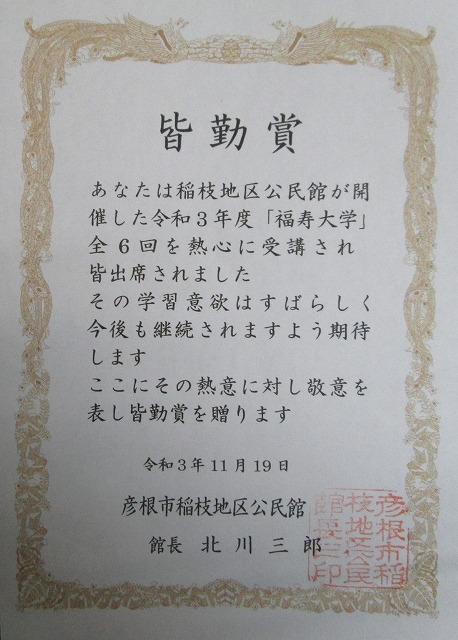 皆勤賞
あなたは稲枝地区公民館が開
催した令和3年度「福寿大学」
全6回を熱心に受講され
皆出席されました
その学習意欲はすばらしく
今後も継続されますよう期待
します
ここにその熱意に対し敬意を
表し皆勤賞を贈ります
令和3年11月19日
彦根市稲枝地区公民館
館長 北川三郎
彦根市稲
枝地区公民
館長之印